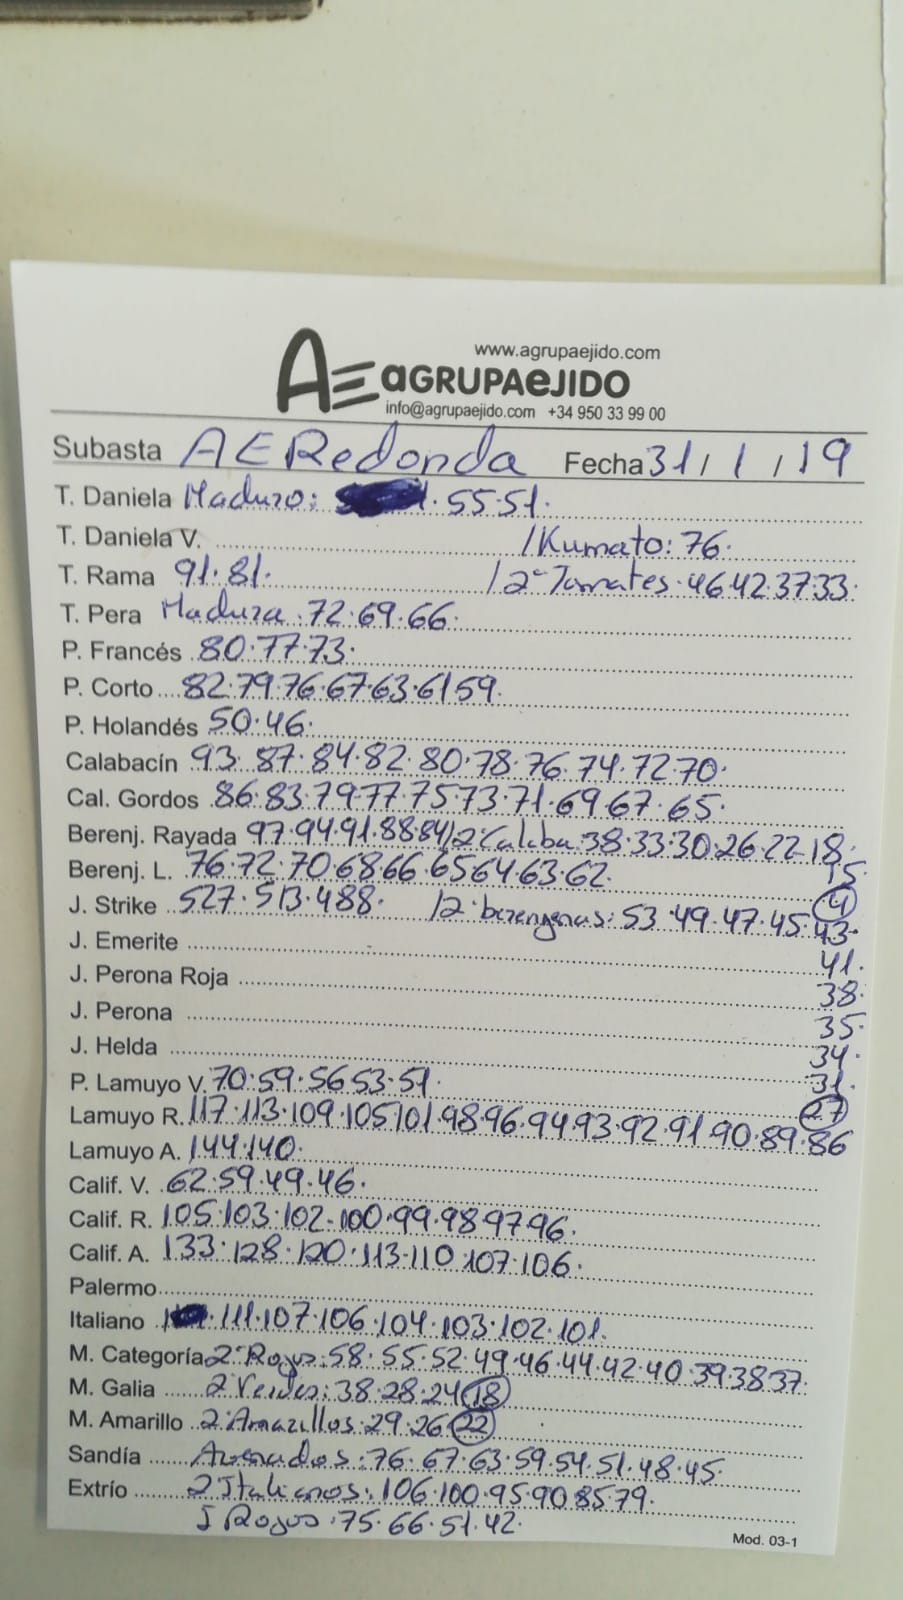 www.agrupaejido.com
AE aGRUPAeJIDO
info@agrupaejido.com +34 950 33 99 00
Subasta AERedonda Fecha 31/1/19
T. Daniela Maduro: 55.51.
T. Daniela V. /Kumato: 76.
T. Rama 91.81. /2ª Tomates.46.42.37.33.
T. Pera Madura.72.69.66.
P. Francés 80.77.73.
P. Corto 82.79.76.67.63.61.59.
P. Holandés 50.46.
Calabacín 93.87.84.82.80.78.76.74.72.70.
Cal. Gordos 86.83.79.77.75.73.71.69.67.65.
Berenj. Rayada 97.94.91.88.84/2ª Calaba.38.33.30.26.22.18.
15.
Berenj. L. 76.72.70.68.66.65.64.63.62.
J. Strike 527.513.488. /2ª berengenas: 53.49.47.45.43.
J. Emerite 41.
J. Perona Roja 38.
J. Perona 35.
J. Helda 34.
31.
P. Lamuyo V. 70.59.56.53.51.
27
Lamuyo R. 117.113.109.105.101.98.96.94.93.92.91.90.89.86
Lamuyo A. 144.140.
Calif. V. 62.59.49.46.
Calif. R. 105.103.102.100.99.98.97.96.
Calif. A. 133.128.120.113.110.107.106.
Palermo
Italiano 111.107.106.104.103.102.101.
M. Categoría 2ª Rojos:58.55.52.49.46.44.42.40.39.38.37.
M. Galia 2ª Verdes:38.28.24.18
M. Amarillo 2ª Amarillos:29.26.22
Sandía :76.67.63.59.54.51.48.45.
Extrío 2ª Italianos:106.100.95.90.85.79.
Rojos.75.66.51.42.
Mod. 03-1